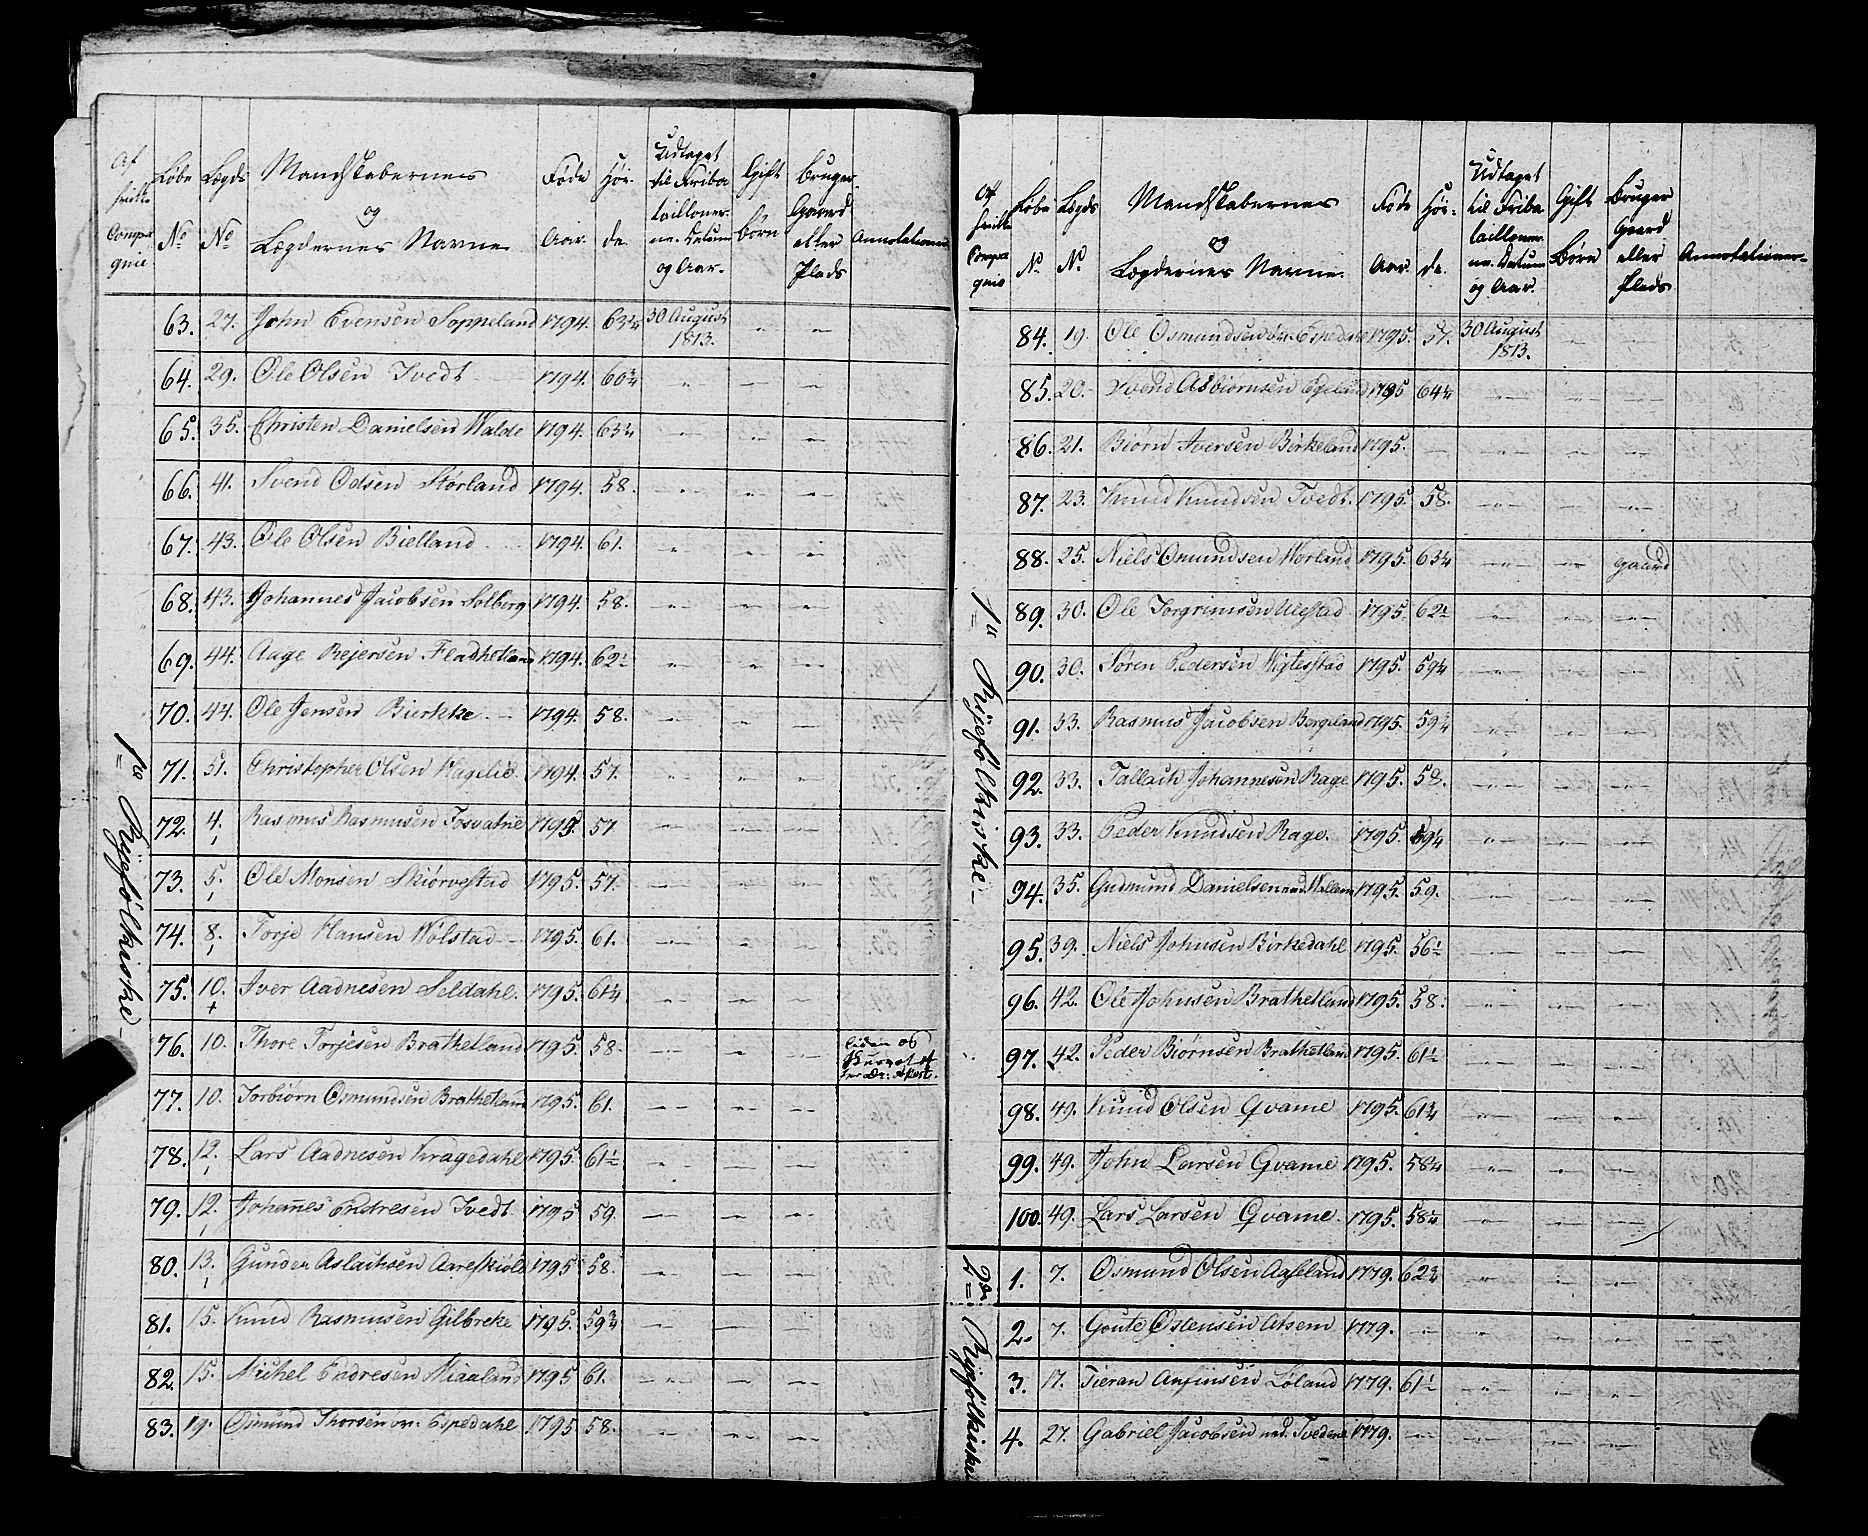 Af hvilke Compagnie | Løbe No | Lægds No | Mandskabernes og Lægdernes Navne | Føde Aar. | Høide. | Udtaget til Fribataillonerne. Datum og Aar. | Gift Børn | Bruger Gaard eller Plads | Annotationer
1te Ryefølkiske
63. 27. John Evensen Soppeland 1794. 63 30 August 1813. " "
64. 29. Ole Olsen Tvedt 1794. 60 " " "
65. 35. Christen Danielsen Walde 1794. 63 " " "
66. 41. Svend Odsen Størland 1794. 58. " " "
67. 43. Ole Olsen Bielland 1794. 61. " " "
68. 43. Johannes Jacobsen Solberg 1794. 58. " " "
69. 44. Aage Rejersen Fladhetland 1794. 62 " " "
70. 44. Ole Jensen Birkke 1794. 58. " " "
71. 51. Christopher Olsen Hagelie 1794. 57. " " "
72. 4. Rasmus Rasmusen Fosvatne 1795. 57 " " "
73. 5. Ole Monsen Skiørvestad 1795. 57. " " "
74. 8. Torje Hansen Wølstad 1795. 61. " " "
75. 10. Iver Aadnesen Seldahl. 1795. 61 " " "
76. 10. Thore Torjesen Brathetland 1795. 58 " " " liden og
77. 10. Torbiørn Osmundsen Brathetland 1795. 61. " " "
78. 12. Lars Aadnesen Kragedahl 1795. 61 " " "
79. 12. Johannes Endresen Tvedt 1795 59. " " "
80. 13. Gunder Aslachsen Aareskiold 1795 58. " " "
81. 15. Knud Rasmusen Gilbreke 1795. 59 " " "
82. 15. Michel Endresen Miaaland 1795 61. " " "
83. 19. Osmund Thorsen øv: Espedahl 1795 58. " " "
Af hvilke Compagnie | Løbe No. | Lægds No. | Mandskabernes og Lægdernes Navne. | Føde Aar. | Høide. | Udtaget til Fribataillonerne. Datum og Aar. | Gift Børn | Bruger Gaard eller Plads | Annotationer
1te Ryefølkiske
84. 19. Ole Osmundsen øv: Espedahl 1795. 57. 30 August 1813. " "
85. 20. Svend Asbiørnsen Egeland 1795 64 " " "
86. 21. Biørn Iversen Birkeland 1795. " " " "
87. 23. Knud Knudsen Tvedt. 1795. 58. " " "
88. 25. Niels Omundsen Worland 1795. 63 " " gaard
89. 30. Ole Torgrimsen Ulestad 1795. 62 " " "
90. 30. Søren Pedersen Wigtestad 1795. 59 " " "
91. 33. Rasmus Jacobsen Bergeland 1795. 59 " " "
92. 33. Tallach Johannesen Rage 1795. 58. " " "
93. 33. Peder Knudsen Rage. 1795. 59¼ " " "
94. 35. Gudmund Danielsen 1795. 59. " " "
95. 39. Niels Johnsen Birkedahl 1795. 56 " " "
96. 42. Ole Johnsen Brathetland 1795. 58. " " "
97. 42. Peder Biørnsen Brathetland 1795. 61 " " "
98. 49. Knud Olsen Qvame 1795. 61 " " "
99. 49. John Larsen Qvame 1795. 58 " " "
100. 49. Lars Larsen Qvame. 1795. 58 " " "
2den Ryefølkiske
1. 7. Osmund Olsen Aaseland 1779. 62 " " "
2. 7. Goute Østensen Atsem 1779. " " " "
3. 17. Tieran Anfinsen Løland 1779. 61 " " "
4. 27. Gabriel Jacobsen ned. Tvedene 1779. " " " "